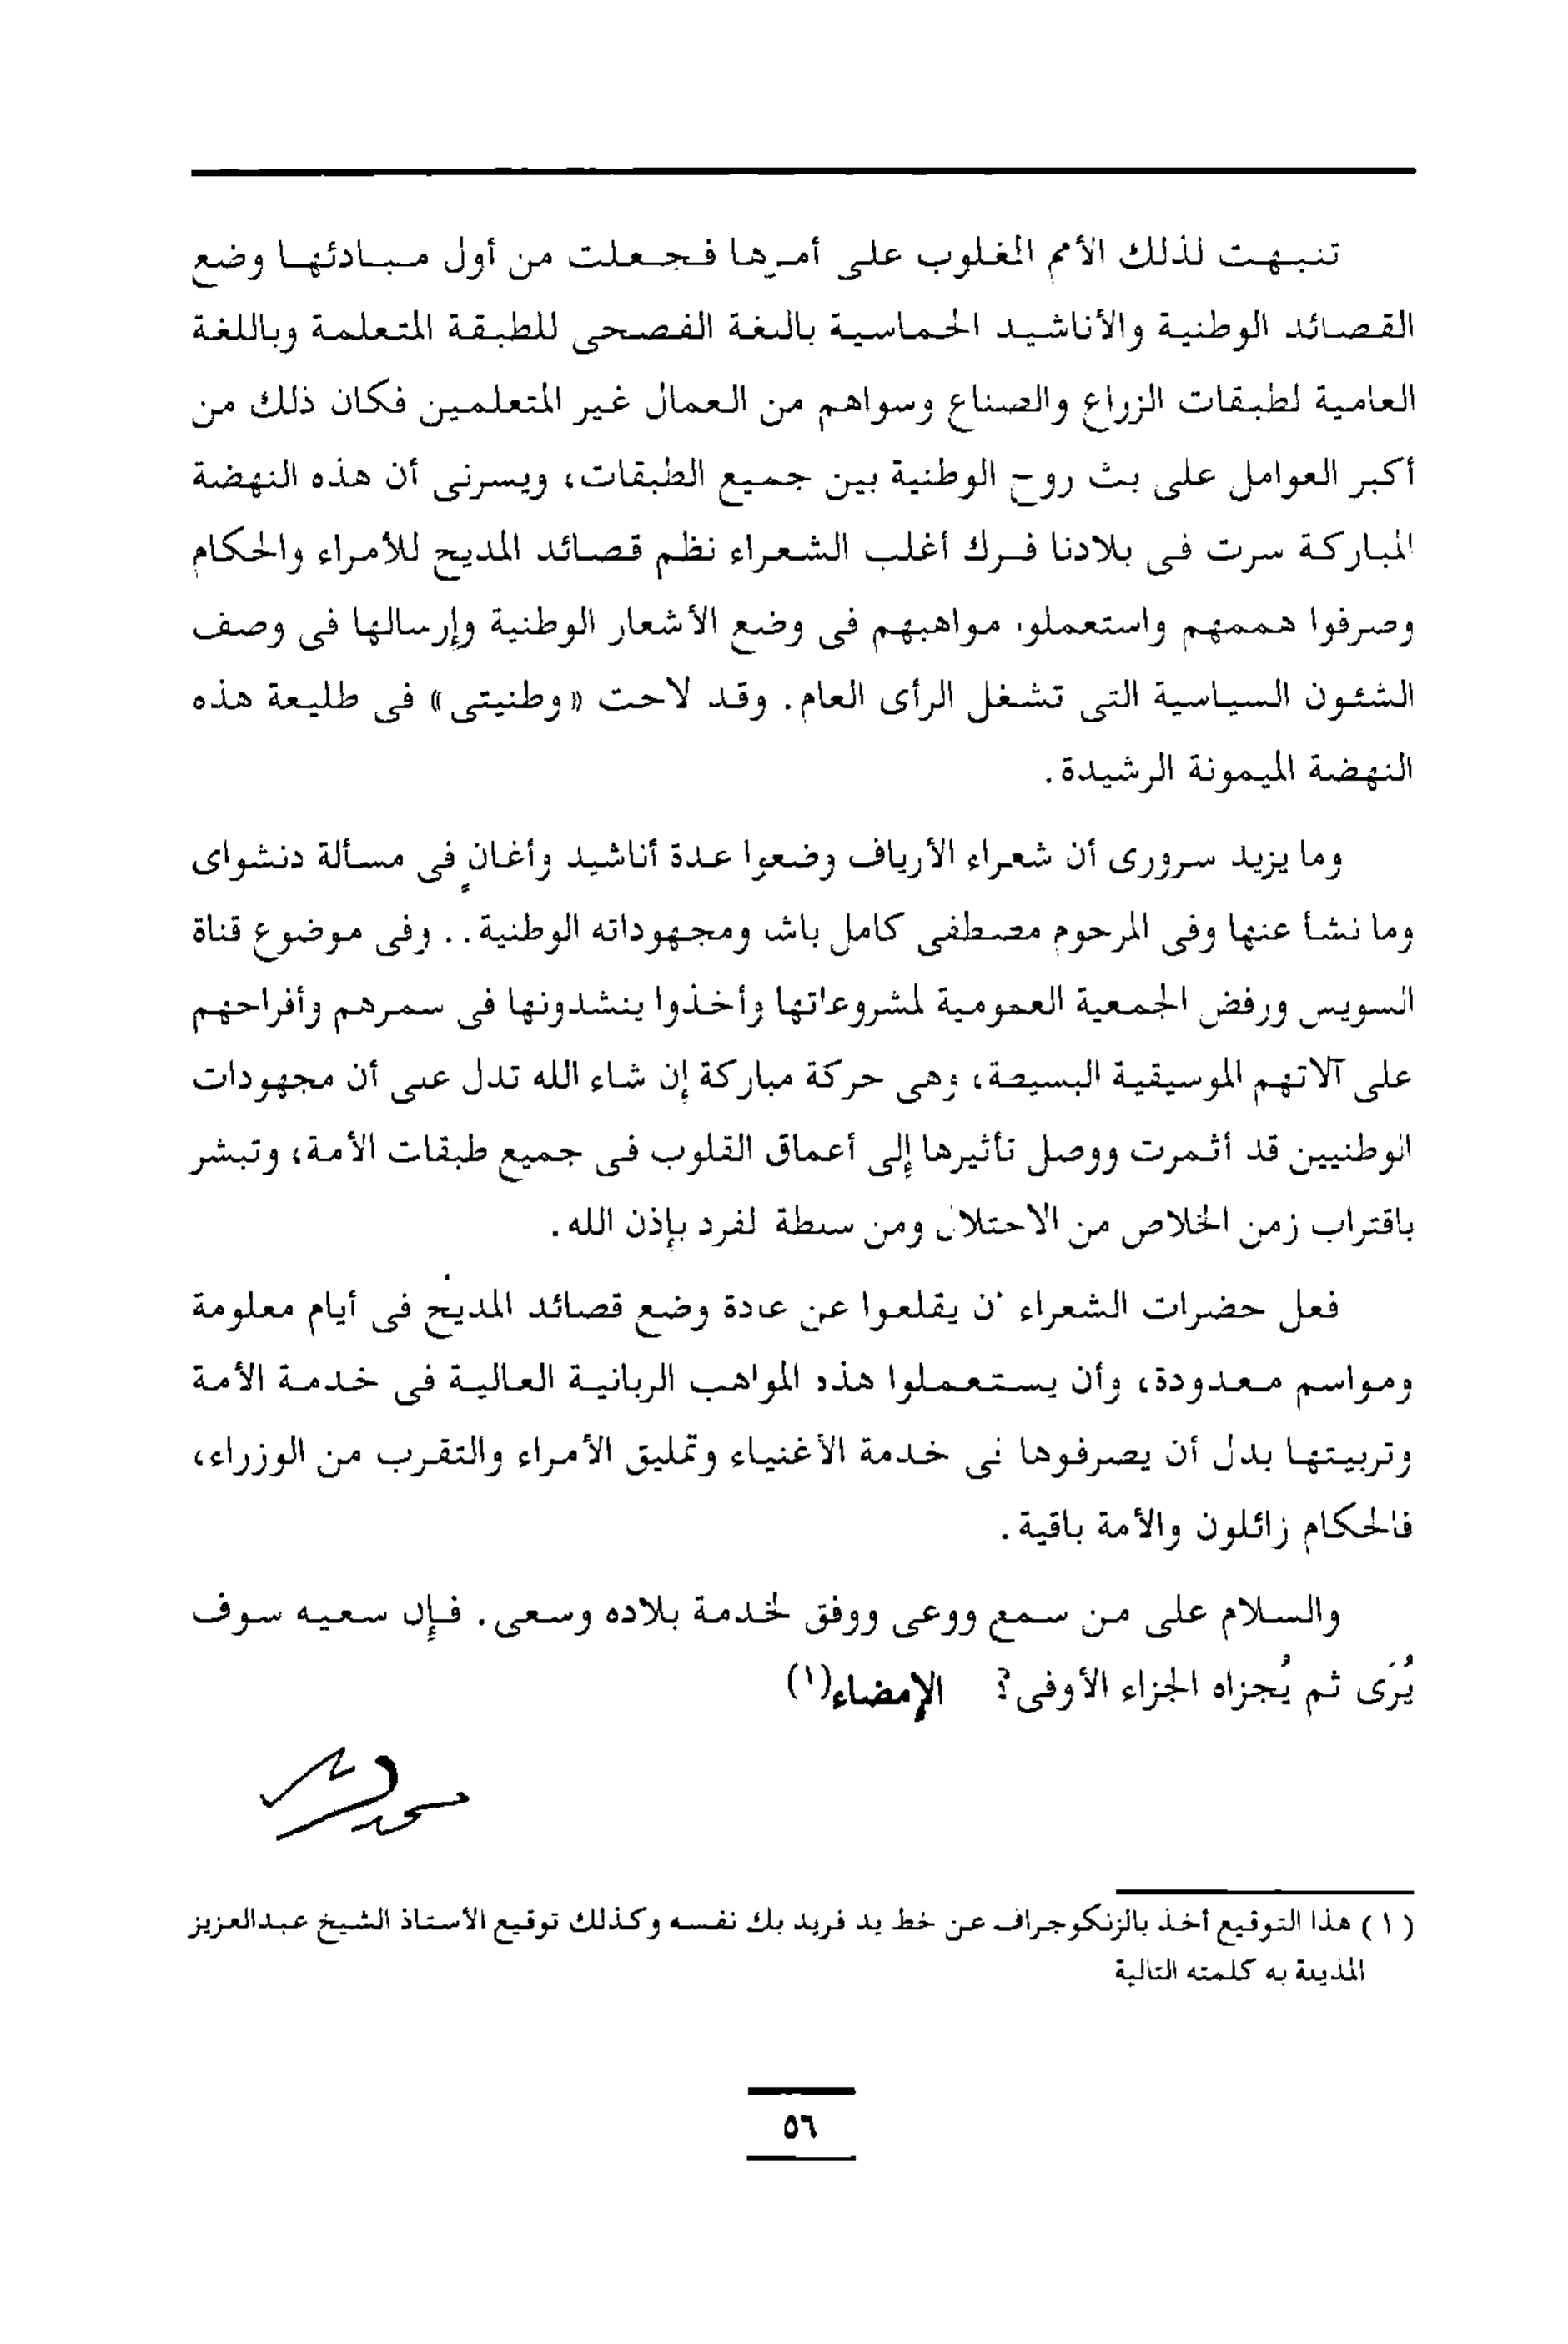 تنبهت لذلك الأمم المغلوب على أمرها فجعلت من أول مبادئها وضع
القصائد الوطنية والأناشيد الحماسية باللغة الفصحى للطبقة المتعلمة وباللغة
العامية لطبقات الزراع والصناع وسواهم من العمال غير المتعلمين فكان ذلك من
أكبر العوامل على بث روح الوطنية بين جميع الطبقات، ويسرنى أن هذه النهضة
المباركة سرت فى بلادنا فترك أغلب الشعراء نظم قصائد المديح للأمراء والحكام
وصرفوا هممهم واستعملوا مواهبهم فى وضع الأشعار الوطنية وإرسالها فى وصف
الشئون السياسية التى تشغل الرأى العام. وقد لاحت «وطنيتى» فى طليعة هذه
النهضة الميمونة الرشيدة.
وما يزيد سرورى أن شعراء الأرياف وضعوا عدة أناشيد وأغانٍ فى مسألة دنشواى
وما نشأ عنها وفى المرحوم مصطفى كامل باشا ومجهوداته الوطنية.. وفى موضوع قناة
السويس ورفض الجمعية العمومية لمشروعاتها وأخذوا ينشدونها فى سمرهم وأفراحهم
على آلاتهم الموسيقية البسيطة، وهى حركة مباركة إن شاء الله تدل على أن مجهودات
الوطنيين قد أثمرت ووصل تأثيرها إلى أعماق القلوب فى جميع طبقات الأمة، وتبشر
باقتراب زمن الخلاص من الاحتلال ومن سلطة الفرد بإذن الله.
فعل حضرات الشعراء أن يقلعوا عن عادة وضع قصائد المديح فى أيام معلومة
ومواسم معدودة، وأن يستعملوا هذه المواهب الربانية العالية فى خدمة الأمة
وتربيتها بدل أن يصرفوها فى خدمة الأغنياء وتمليق الأمراء والتقرب من الوزراء،
فالحكام زائلون والأمة باقية.
والسلام على من سمع ووعى ووفق لخدمة بلاده وسعى. فإن سعيه سوف
يُرَى ثم يُجزاه الجزاء الأوفى؟ الإمضاء(١)
(١) هذا التوقيع أخذ بالزنكوجراف عن خط يد فريد بك نفسه وكذلك توقيع الأستاذ الشيخ عبدالعزيز
المذيلة به كلمته التالية
٥٦